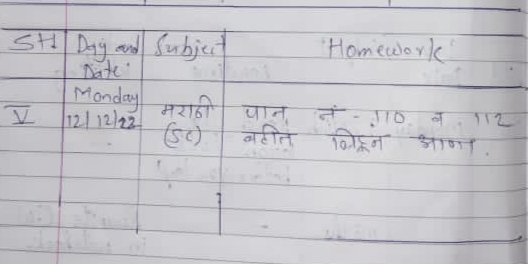 STD Day and Date Subject Homework
V Monday 12/12/22 मराठी (SC) पान नं - 110 व 112
वहीत लिहून आणा.